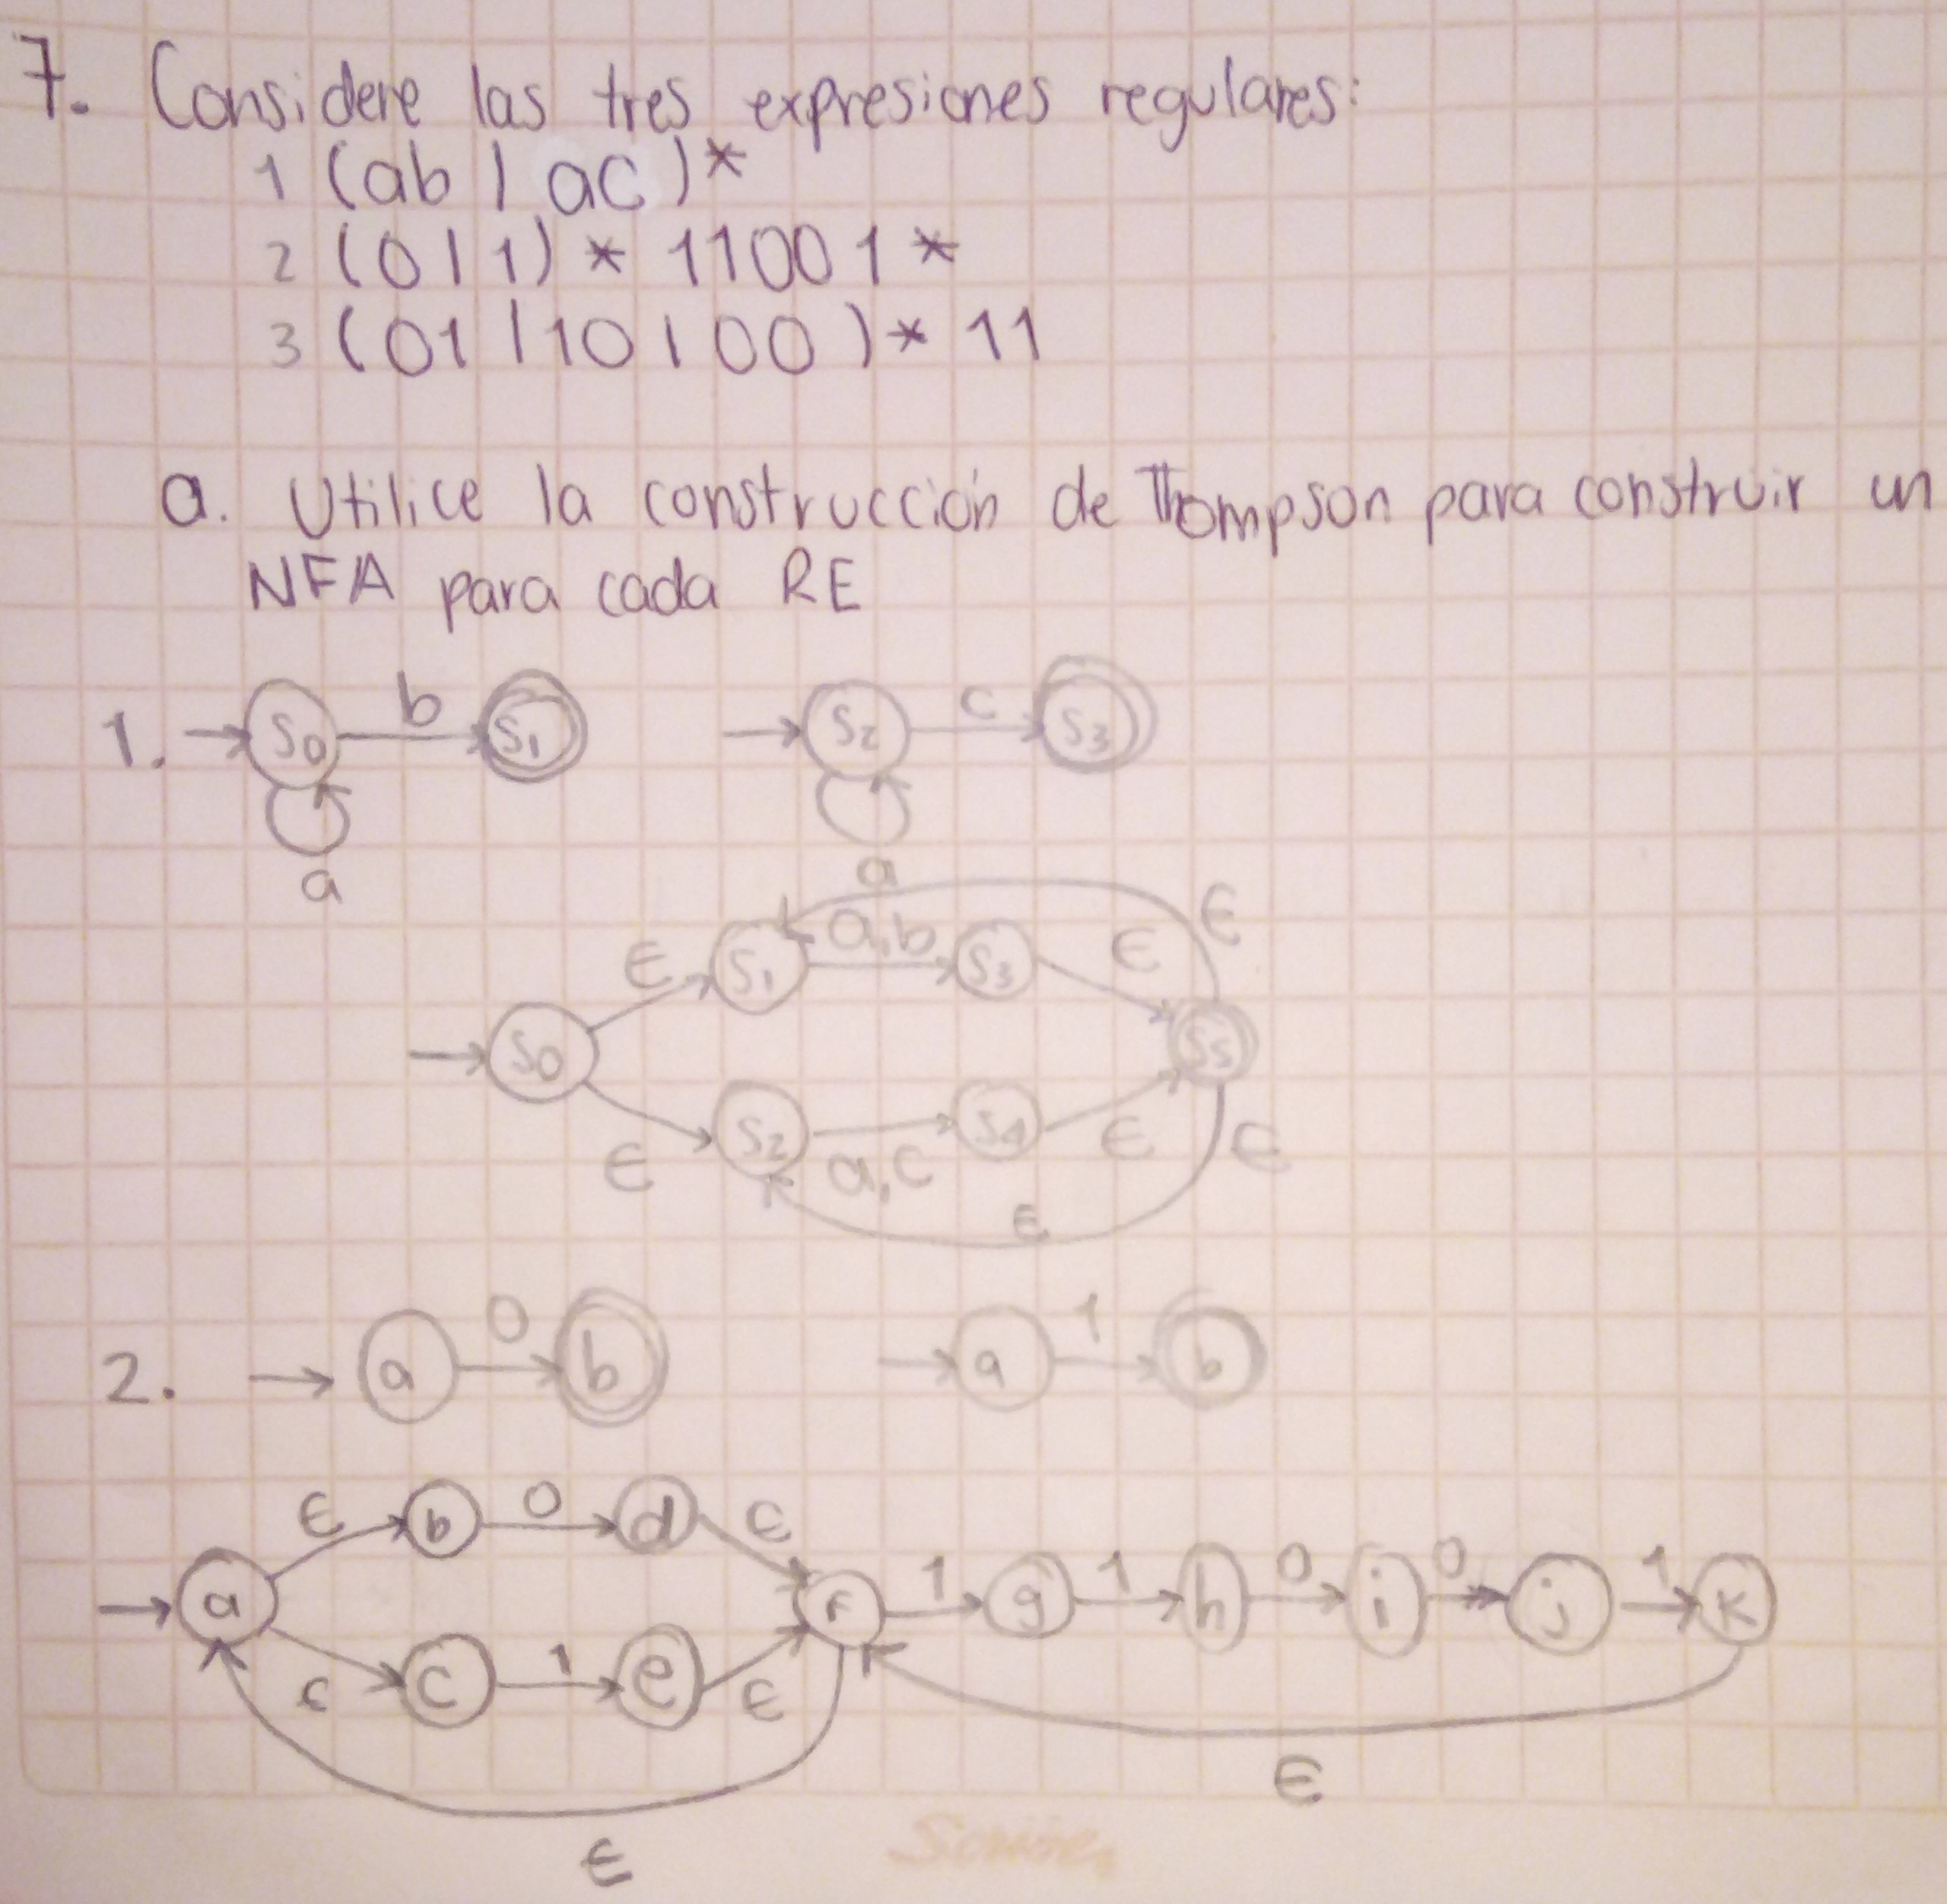 7. Considere las tres expresiones regulares:
1 (ab | ac)*
2 (0 | 1) * 11001 *
3 (01 | 10 | 00 )* 11
a. Utilice la construcción de Thompson para construir un
NFA para cada RE
1. S0 b S1 S2 c S3
a a
ϵ
ϵ S1 a,b S3 ϵ
S0 S5
ϵ S2 a,c S4 ϵ ϵ
ϵ
2. a 0 b a 1 b
ϵ b 0 d ϵ
a f 1 g 1 h 0 i 0 j 1 k
ϵ c 1 e ϵ
ϵ
ϵ
Scribe